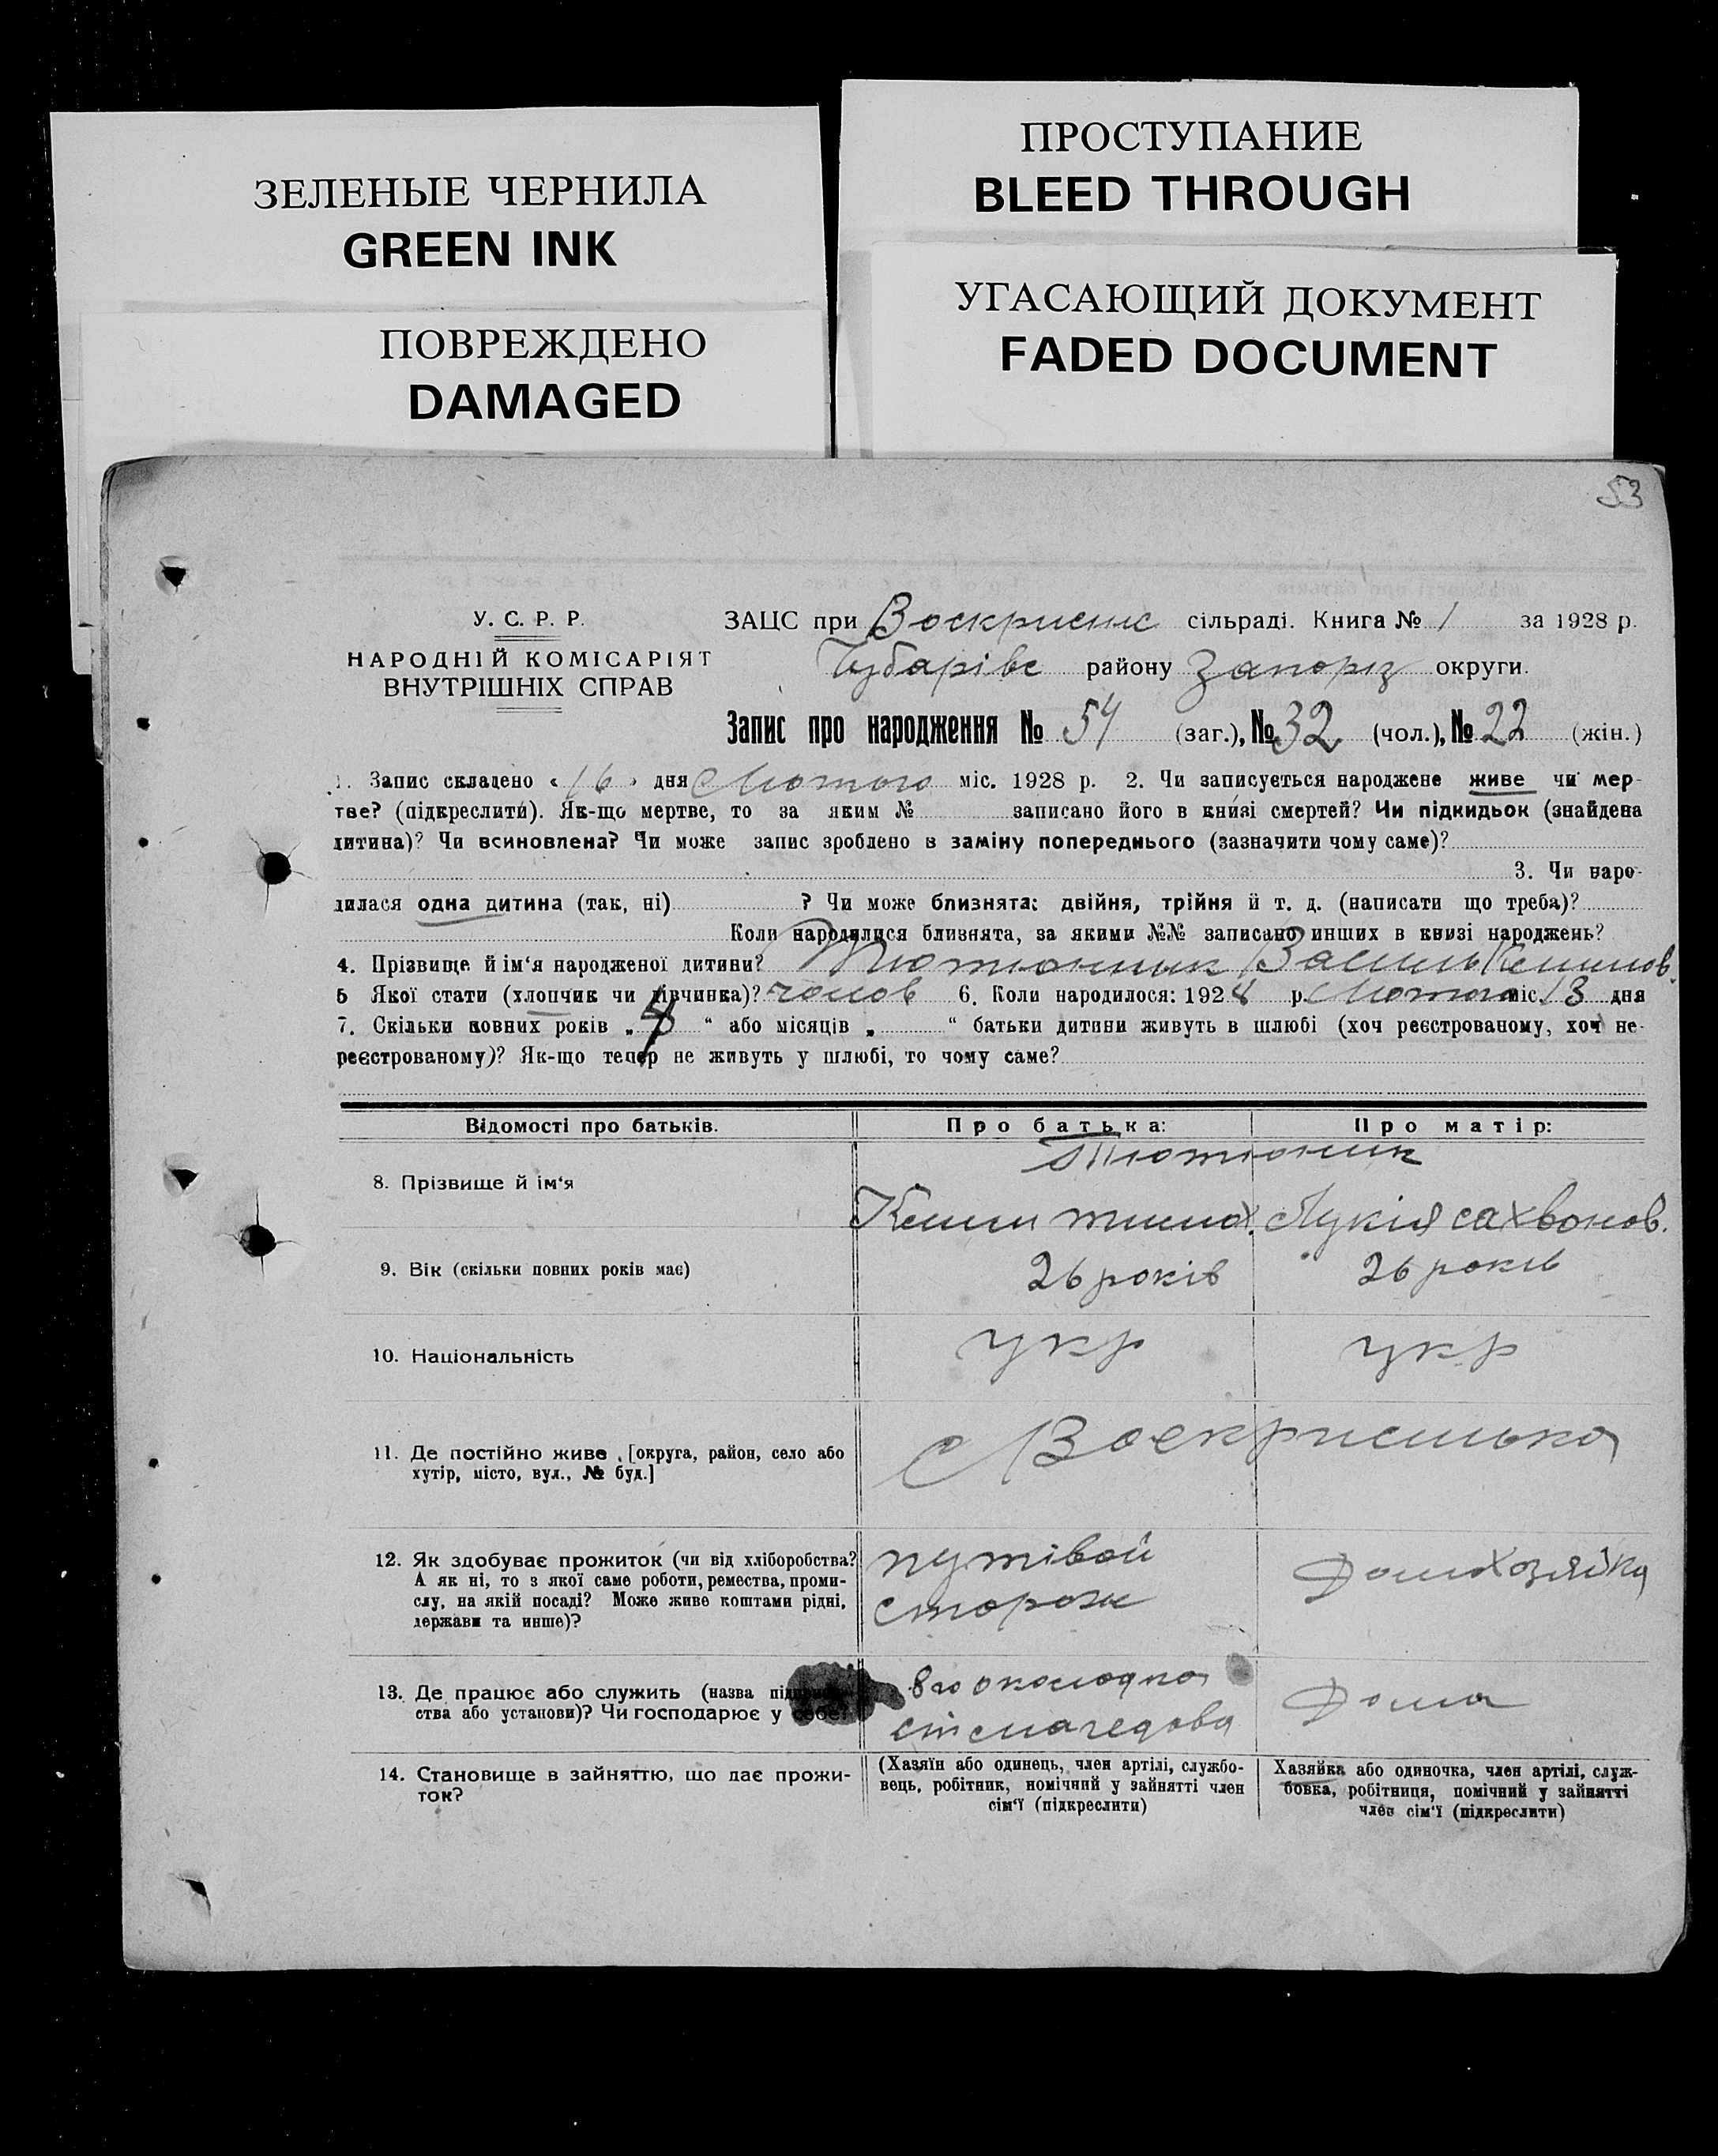 ЗЕЛЕНЫЕ ЧЕРНИЛА
GREEN INK
ПОВРЕЖДЕНО
DAMAGED
ПРОСТУПАНИЕ
BLEED THROUGH
УГАСАЮЩИЙ ДОКУМЕНТ
FADED DOCUMENT
53
У. С. Р. Р.
НАРОДНІЙ КОМІСАРІЯТ
ВНУТРІШНІХ СПРАВ
ЗАЦС при Воскрисенс сільраді. Книга № 1 за 1928 р.
Чубарівс району Запоріз округи.
Запис про народження № 54 (заг.), № 32 (чол.), № 22 (жін.)
1. Запис складено « 16 » дня Лютого міс. 1928 р. 2. Чи записується народжене живе чи мер-
тве? (підкреслити). Як-що мертве, то за яким № записано його в книзі смертей? Чи підкидьок (знайдена
дитина)? Чи всиновлена? Чи може запис зроблено в заміну попереднього (зазначити чому саме)?
3. Чи наро-
дилася одна дитина (так, ні) ? Чи може близнята: двійня, трійня й т. д. (написати що треба)?
Коли народилися близнята, за якими №№ записано инших в книзі народжень?
4. Прізвище й ім‘я народженої дитини? Тютюнник Василь
5 Якої стати (хлопчик чи дівчинка)? чолов 6. Коли народилося: 1928 р. Лютого міс. 13 дня
7. Скільки повних років „ “ або місяців „ “ батьки дитини живуть в шлюбі (хоч реєстрованому, хоч не-
реєстрованому)? Як-що тепер не живуть у шлюбі, то чому саме?
Відомості про батьків. Про батька: Про матір:
Тютюник
8. Прізвище й ім‘я
Лукія сахвонов.
9. Вік (скільки повних років має) 26 років 26 років
10. Національність укр укр
11. Де постійно живе [округа, район, село або
хутір, місто, вул., № буд.]
с Воскрисенька
12. Як здобуває прожиток (чи від хліборобства?
А як ні, то з якої саме роботи, ремества, проми-
слу, на якій посаді? Може живе коштами рідні,
держави та инше)?
путівой
сторож
Домохозяйка
13. Де працює або служить (назва підприєм-
ства або установи)? Чи господарює у себе?
8го околодка
Дома
14. Становище в зайняттю, що дає прожи-
ток?
(Хазяїн або одинець, член артілі, службо-
вець, робітник, помічний у зайнятті член
сім‘ї (підкреслити)
Хазяйка або одиночка, член артілі, служ-
бовка, робітниця, помічний у зайнятті
член сім‘ї (підкреслити)